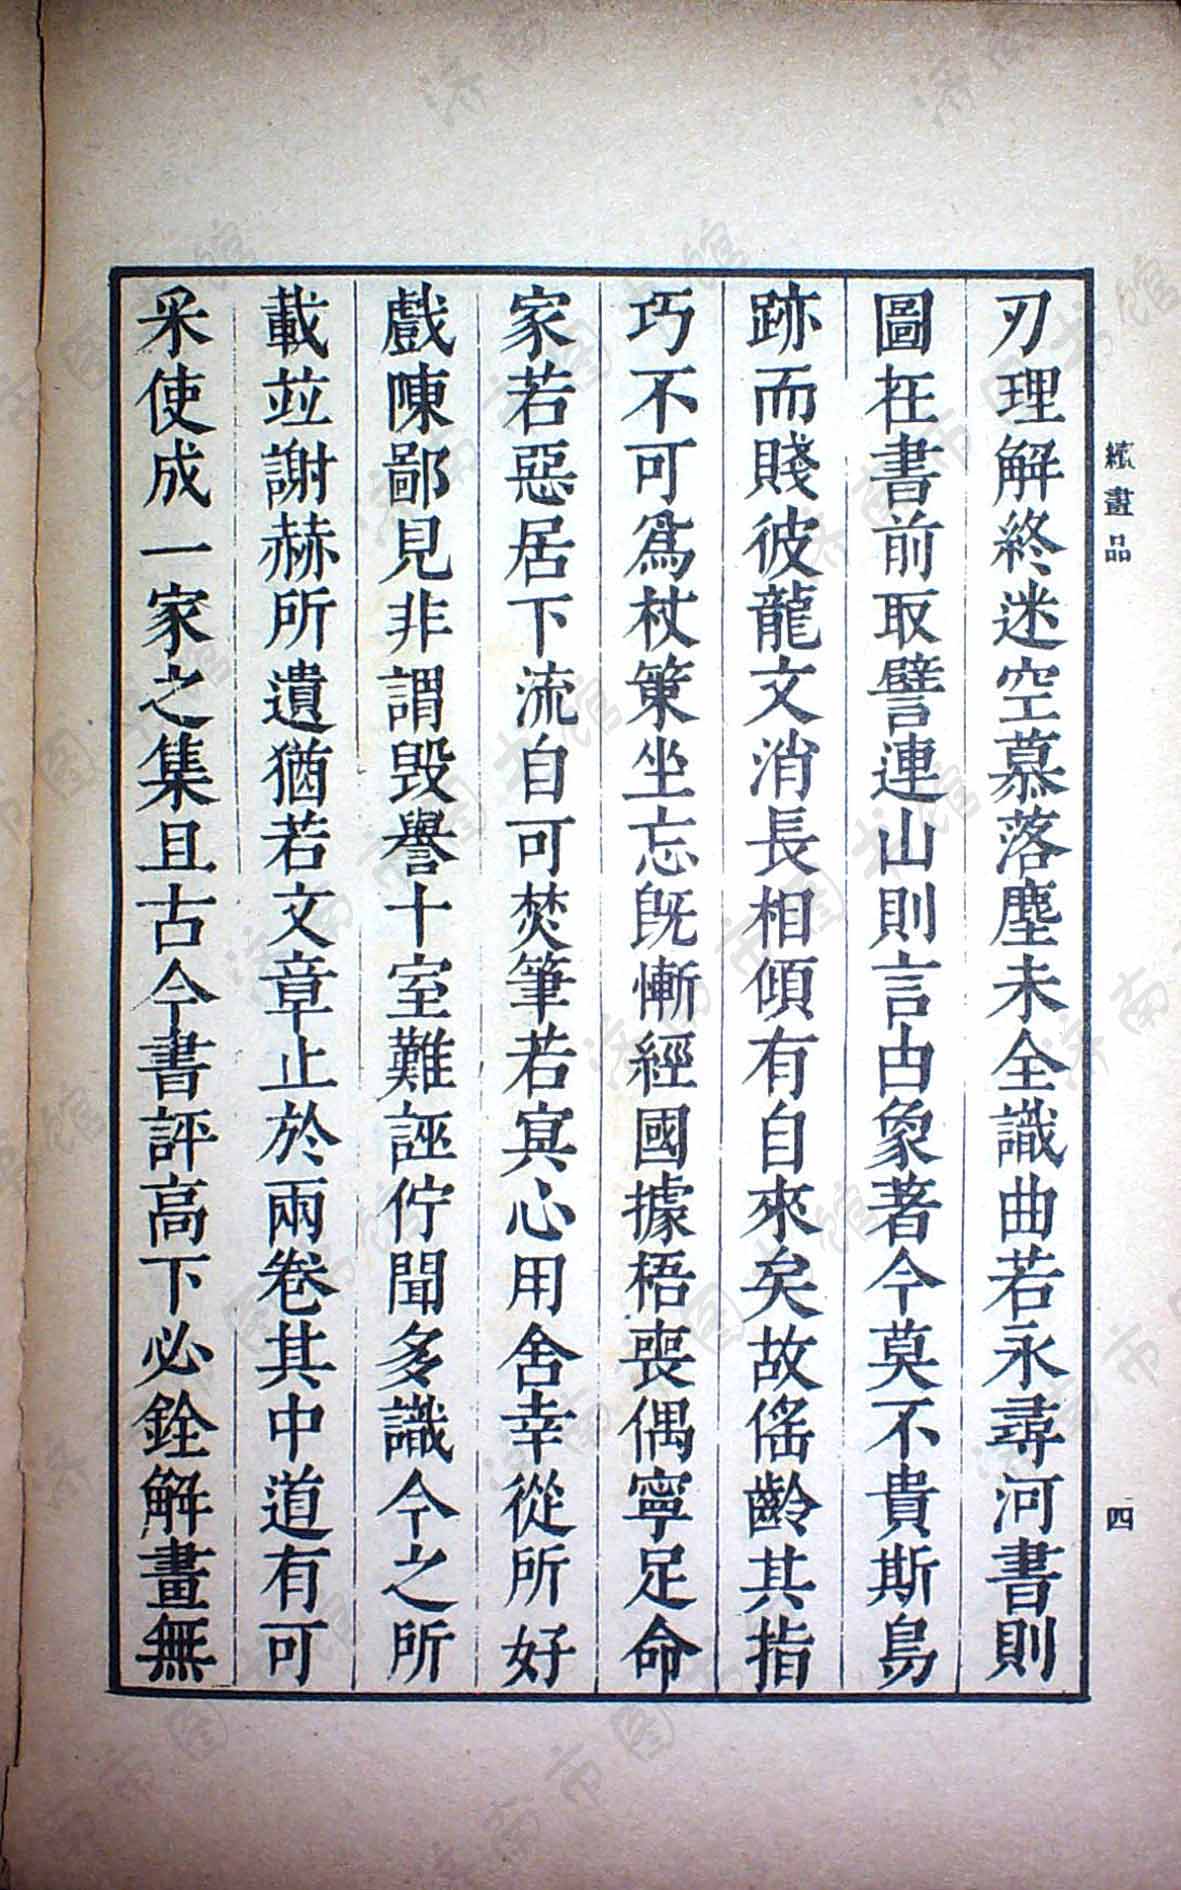 刃理解終迷空慕落塵未全識曲若永尋河書則
圖在書前取譬連山則言由象著今莫不貴斯鳥
跡而賤彼龍文消長相傾有自來矣故倕齡其指
巧不可爲杖策坐忘既慚經國據梧喪偶寧足命
家若惡居下流自可焚筆若冥心用舍幸從所好
戲陳鄙見非謂毀譽十室難誣佇聞多識今之所
載並謝赫所遺猶若文章止於兩卷其中道有可
采使成一家之集且古今書評高下必銓解畫無
續畫品
四